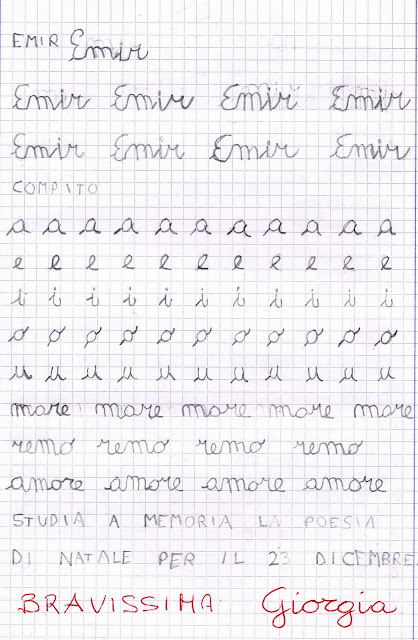 EMIR Emir
Emir Emir Emir Emir
Emir Emir Emir Emir
COMPITO
a a a a a a a a a a a
e e e e e e e e e e e
i i i i i i i i i i i
o o o o o o o o o o o
u u u u u u u u u u u
mare mare mare mare mare
remo remo remo remo
amore amore amore amore
STUDIA A MEMORIA LA POESIA
DI NATALE PER IL 23 DICEMBRE.
BRAVISSIMA Giorgia